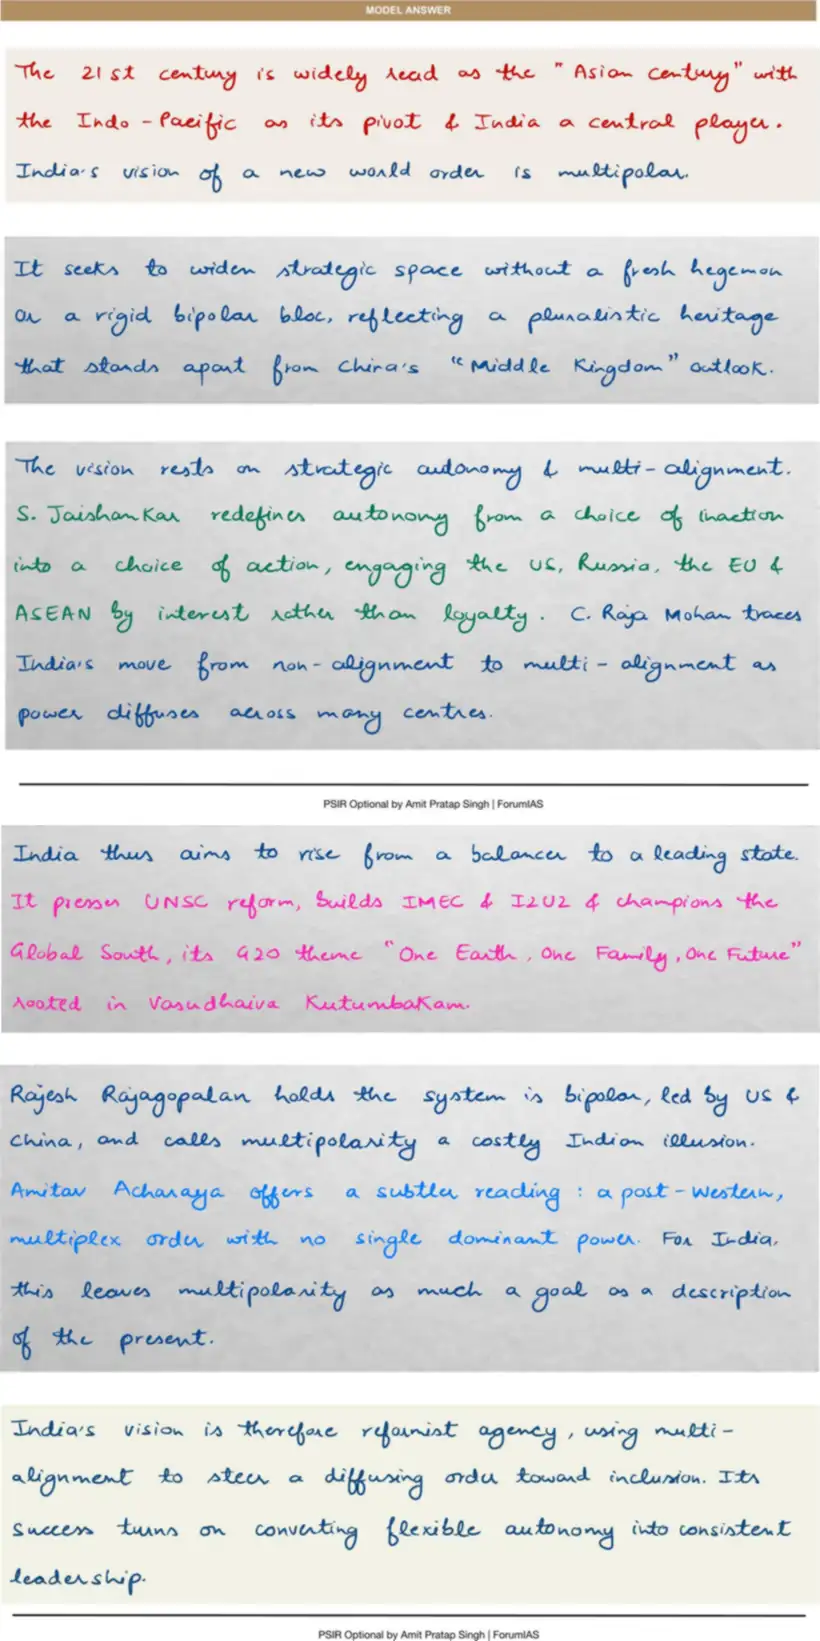 MODEL ANSWER
The 21st century is widely read as the "Asian century" with
the Indo-Pacific as its pivot & India a central player.
India's vision of a new world order is multipolar.
It seeks to widen strategic space without a fresh hegemon
or a rigid bipolar bloc, reflecting a pluralistic heritage
that stands apart from China's "Middle Kingdom" outlook.
The vision rests on strategic autonomy & multi-alignment.
S. Jaishankar redefines autonomy from a choice of inaction
into a choice of action, engaging the US, Russia, the EU &
ASEAN by interest rather than loyalty. C. Raja Mohan traces
India's move from non-alignment to multi-alignment as
power diffuses across many centres.
PSIR Optional by Amit Pratap Singh | ForumIAS
India thus aims to rise from a balancer to a leading state.
It presses UNSC reform, builds IMEC & I2U2 & champions the
Global South, its G20 theme "One Earth, One Family, One Future"
rooted in Vasudhaiva Kutumbakam.
Rajesh Rajagopalan holds the system is bipolar, led by US &
China, and calls multipolarity a costly Indian illusion.
Amitav Acharaya offers a subtler reading: a post-Western,
multiplex order with no single dominant power. For India,
this leaves multipolarity as much a goal as a description
of the present.
India's vision is therefore reformist agency, using multi-
alignment to steer a diffusing order toward inclusion. Its
success turns on converting flexible autonomy into consistent
leadership.
PSIR Optional by Amit Pratap Singh | ForumIAS